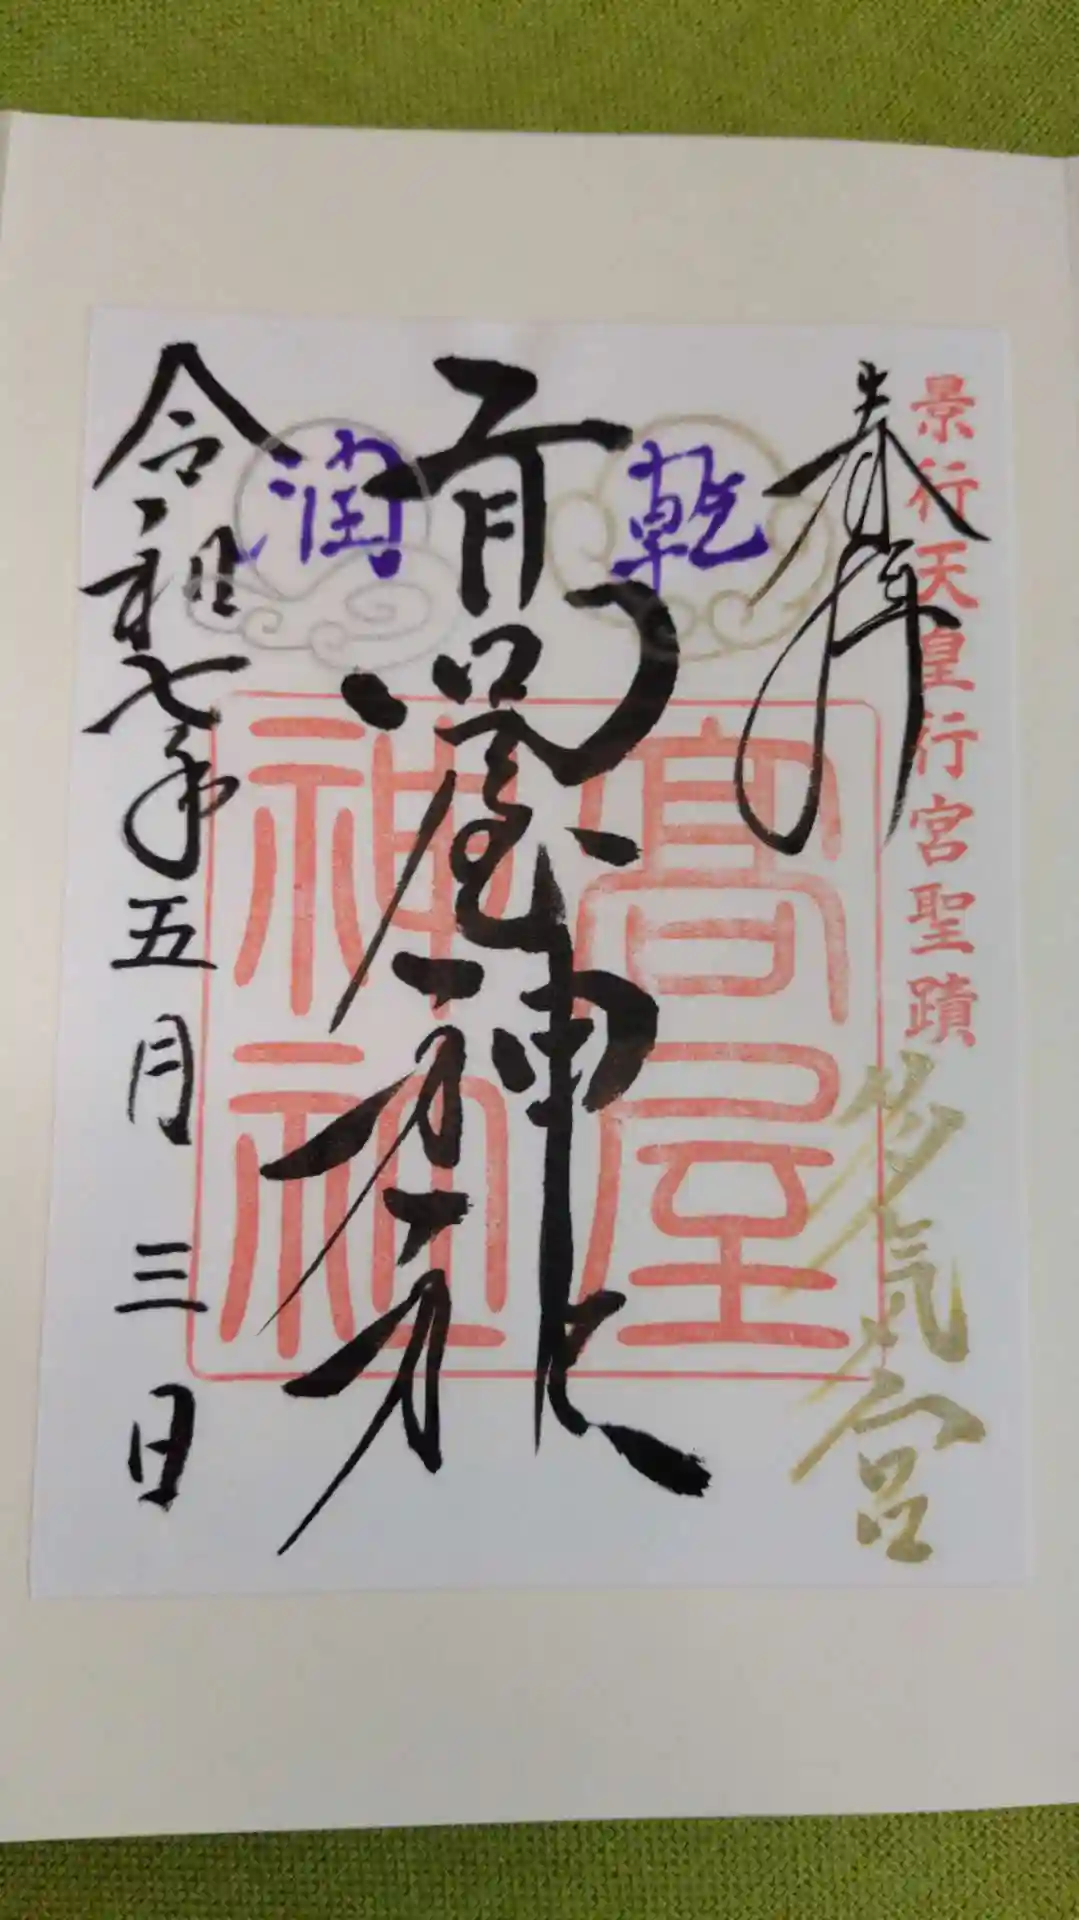 景行天皇行宮聖蹟
多気宮
奉拝
乾
高屋神社
高屋神社
潤
令和七年五月三日